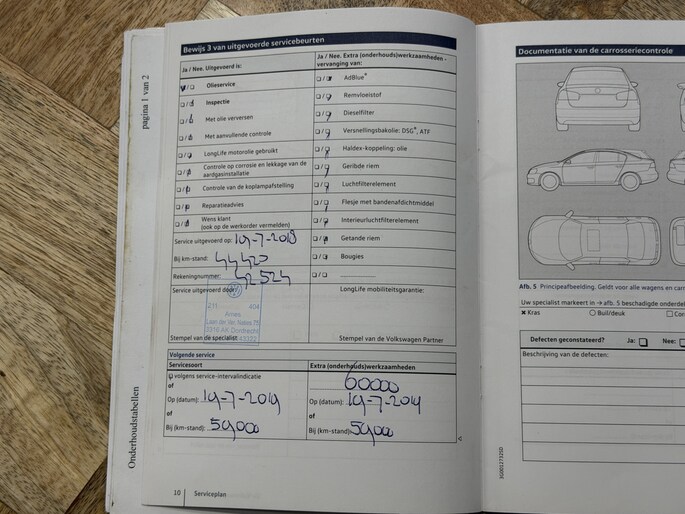 Bewijs 3 van uitgevoerde servicebeurten
Ja / Nee. Uitgevoerd is:
Olieservice
Inspectie
Met olie verversen
Met aanvullende controle
LongLife motorolie gebruikt
Controle op corrosie en lekkage van de
aardgasinstallatie
Controle van de koplampafstelling
Reparatieadvies
Wens klant
(ook op de werkorder vermelden)
Service uitgevoerd op: 19-7-2018
Bij km-stand: 44420
Rekeningnummer: 42524
Service uitgevoerd door:
211 404
Ames
Stempel van de specialist
Ja / Nee. Extra (onderhouds)werkzaamheden -
vervanging van:
AdBlue®
Remvloeistof
Dieselfilter
Versnellingsbakolie: DSG®, ATF
Haldex-koppeling: olie
Geribde riem
Luchtfilterelement
Flesje met bandenafdichtmiddel
Interieurluchtfilterelement
Getande riem
Bougies
LongLife mobiliteitsgarantie:
Stempel van de Volkswagen Partner
Volgende service
Servicesoort
volgens service-intervalindicatie
of
Op (datum): 19-7-2019
of
Bij (km-stand): 59000
Extra (onderhouds)werkzaamheden
60000
Op (datum): 19-7-2019
of
Bij (km-stand): 59000
10 Serviceplan
pagina 1 van 2
Onderhoudstabellen
Documentatie van de carrosseriecontrole
Afb. 5 Principeafbeelding. Geldt voor alle wagens en carr
Uw specialist markeert in → afb. 5 beschadigde onderdel
Kras Buil/deuk Cor
Defecten geconstateerd? Ja: Nee:
Beschrijving van de defecten: